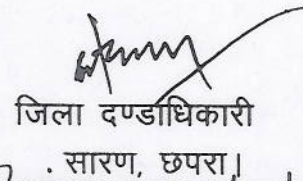 जिला दण्डाधिकारी
सारण, छपरा।